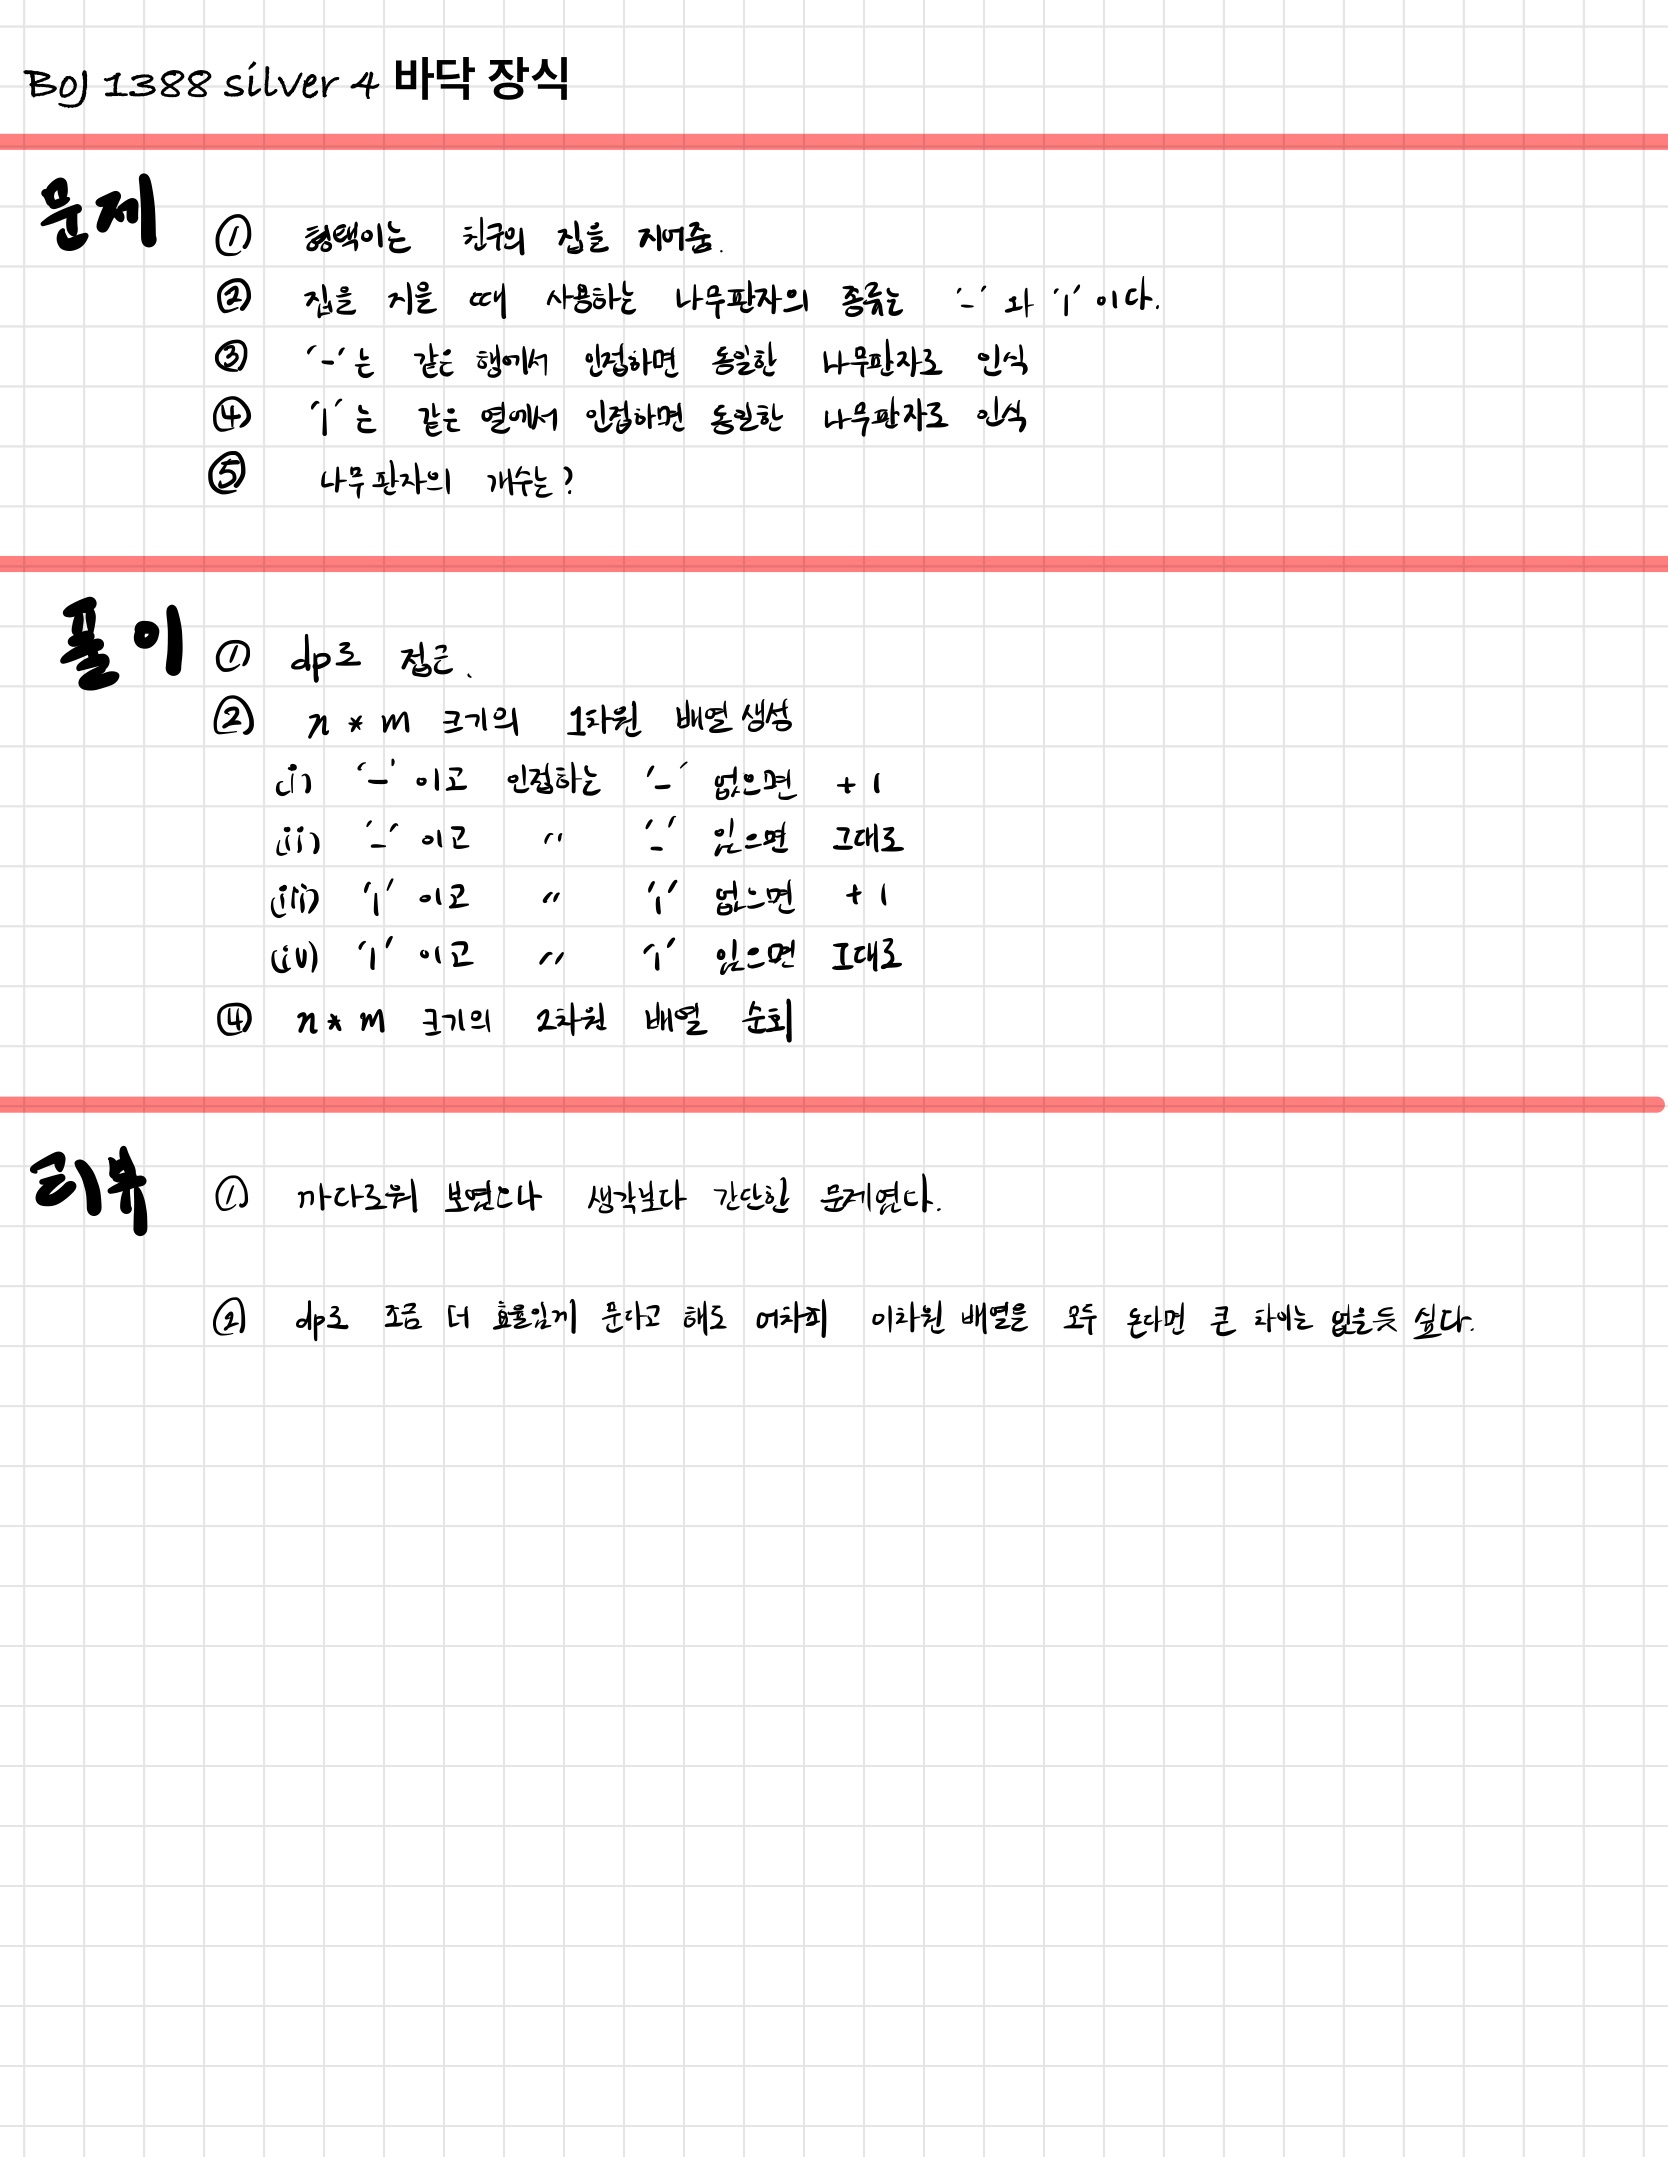 BOJ 1388 silver 4 바닥 장식
문제
① 형택이는 친구의 집을 지어줌.
② 집을 지을 때 사용하는 나무판자의 종류는 '-' 와 '|' 이다.
③ '-'는 같은 행에서 인접하면 동일한 나무판자로 인식
④ '|'는 같은 열에서 인접하면 동일한 나무판자로 인식
⑤ 나무판자의 개수는?
풀이
① dp로 접근.
② n * m 크기의 1차원 배열 생성
(i) '-' 이고 인접하는 '-' 없으면 +1
(ii) '-' 이고 〃 '-' 있으면 그대로
(iii) '|' 이고 〃 '|' 없으면 +1
(iv) '|' 이고 〃 '|' 있으면 그대로
④ n * m 크기의 2차원 배열 순회
리뷰
① 까다로워 보였으나 생각보다 간단한 문제였다.
② dp로 조금 더 효율있게 푼다고 해도 어차피 이차원 배열을 모두 돈다면 큰 차이는 없을듯 싶다.